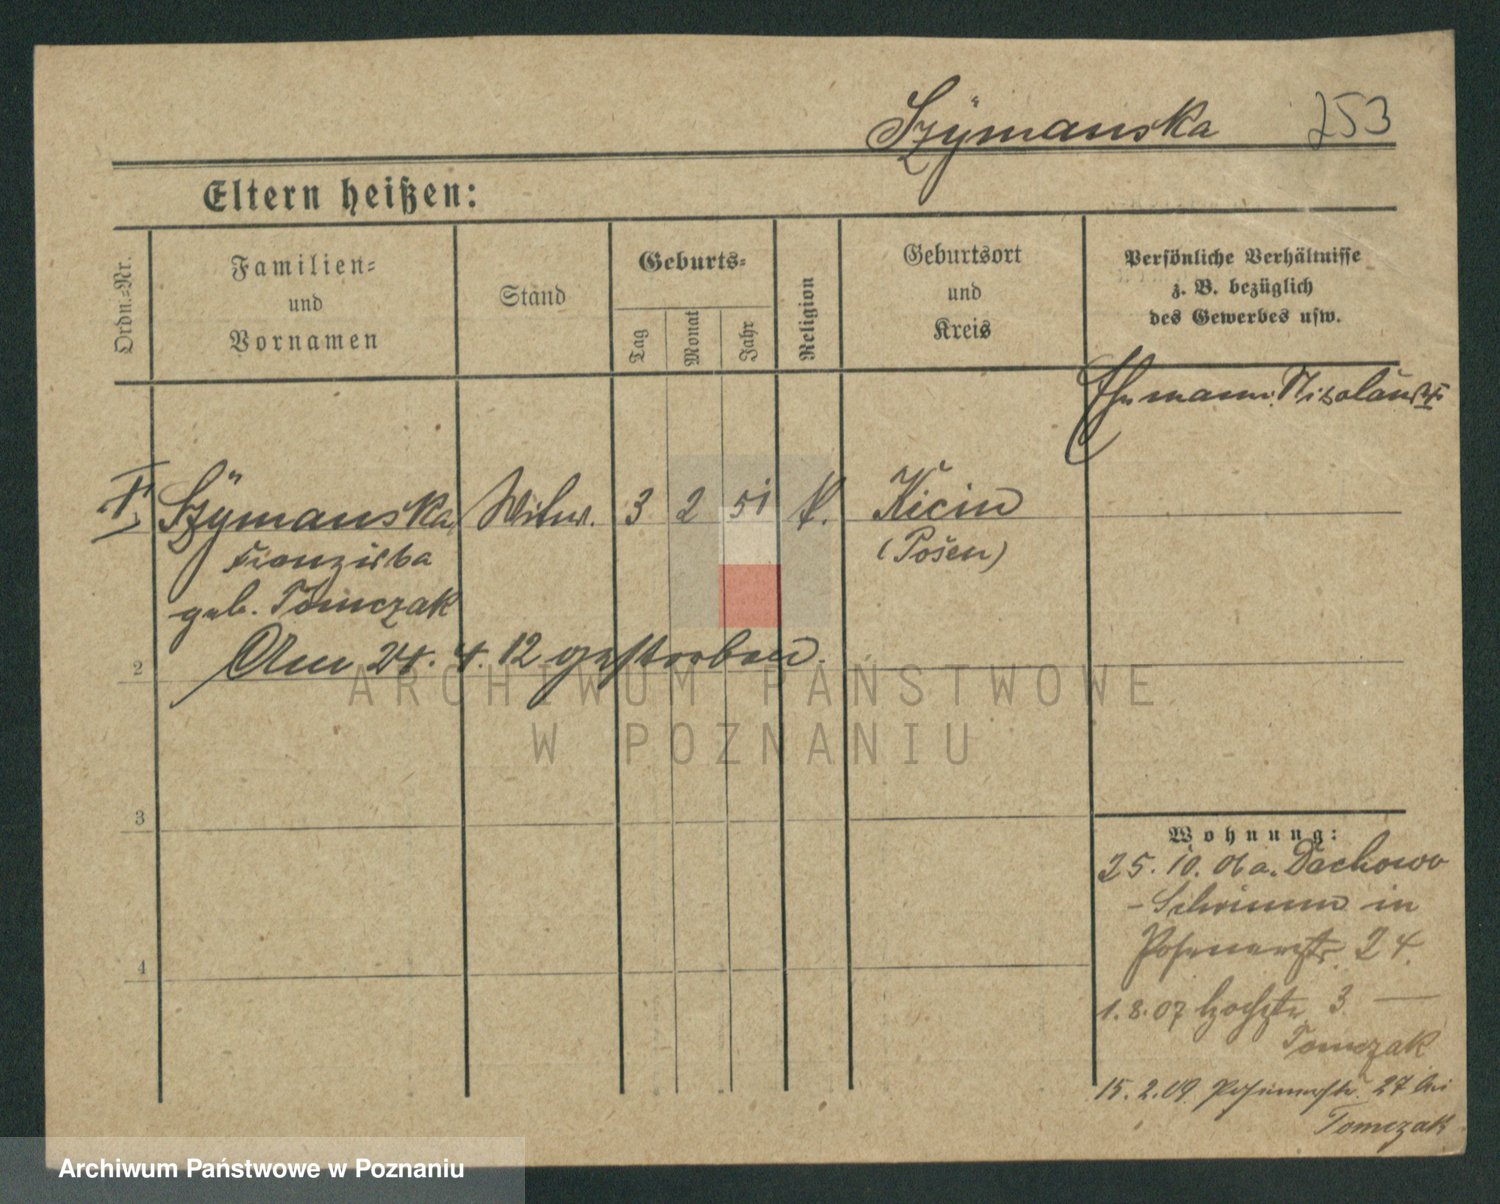 Szÿmanska 253
Eltern heißen:
Ordn.=Nr.
Familien=
und
Vornamen
Stand
Geburts=
Tag
Monat
Jahr
Religion
Geburtsort
und
Kreis
Persönliche Verhältnisse
z. B. bezüglich
des Gewerbes usw.
Ehemann:
Szÿmanska Witw. 3 2 51 k. Kicin
Franziska (Posen)
geb. Tomczak
Am 24. 4. 12 gestorben.
2
3
4
Wohnung:
25. 10. 06 a. Dachowo
- Schrimm in
Posenerstr. 24.
1. 8. 07 3
Tomczak
15. 2. 09 Posenerstr. 27 bei
Tomczak
ARCHIWUM PAŃSTWOWE
W POZNANIU
Archiwum Państwowe w Poznaniu